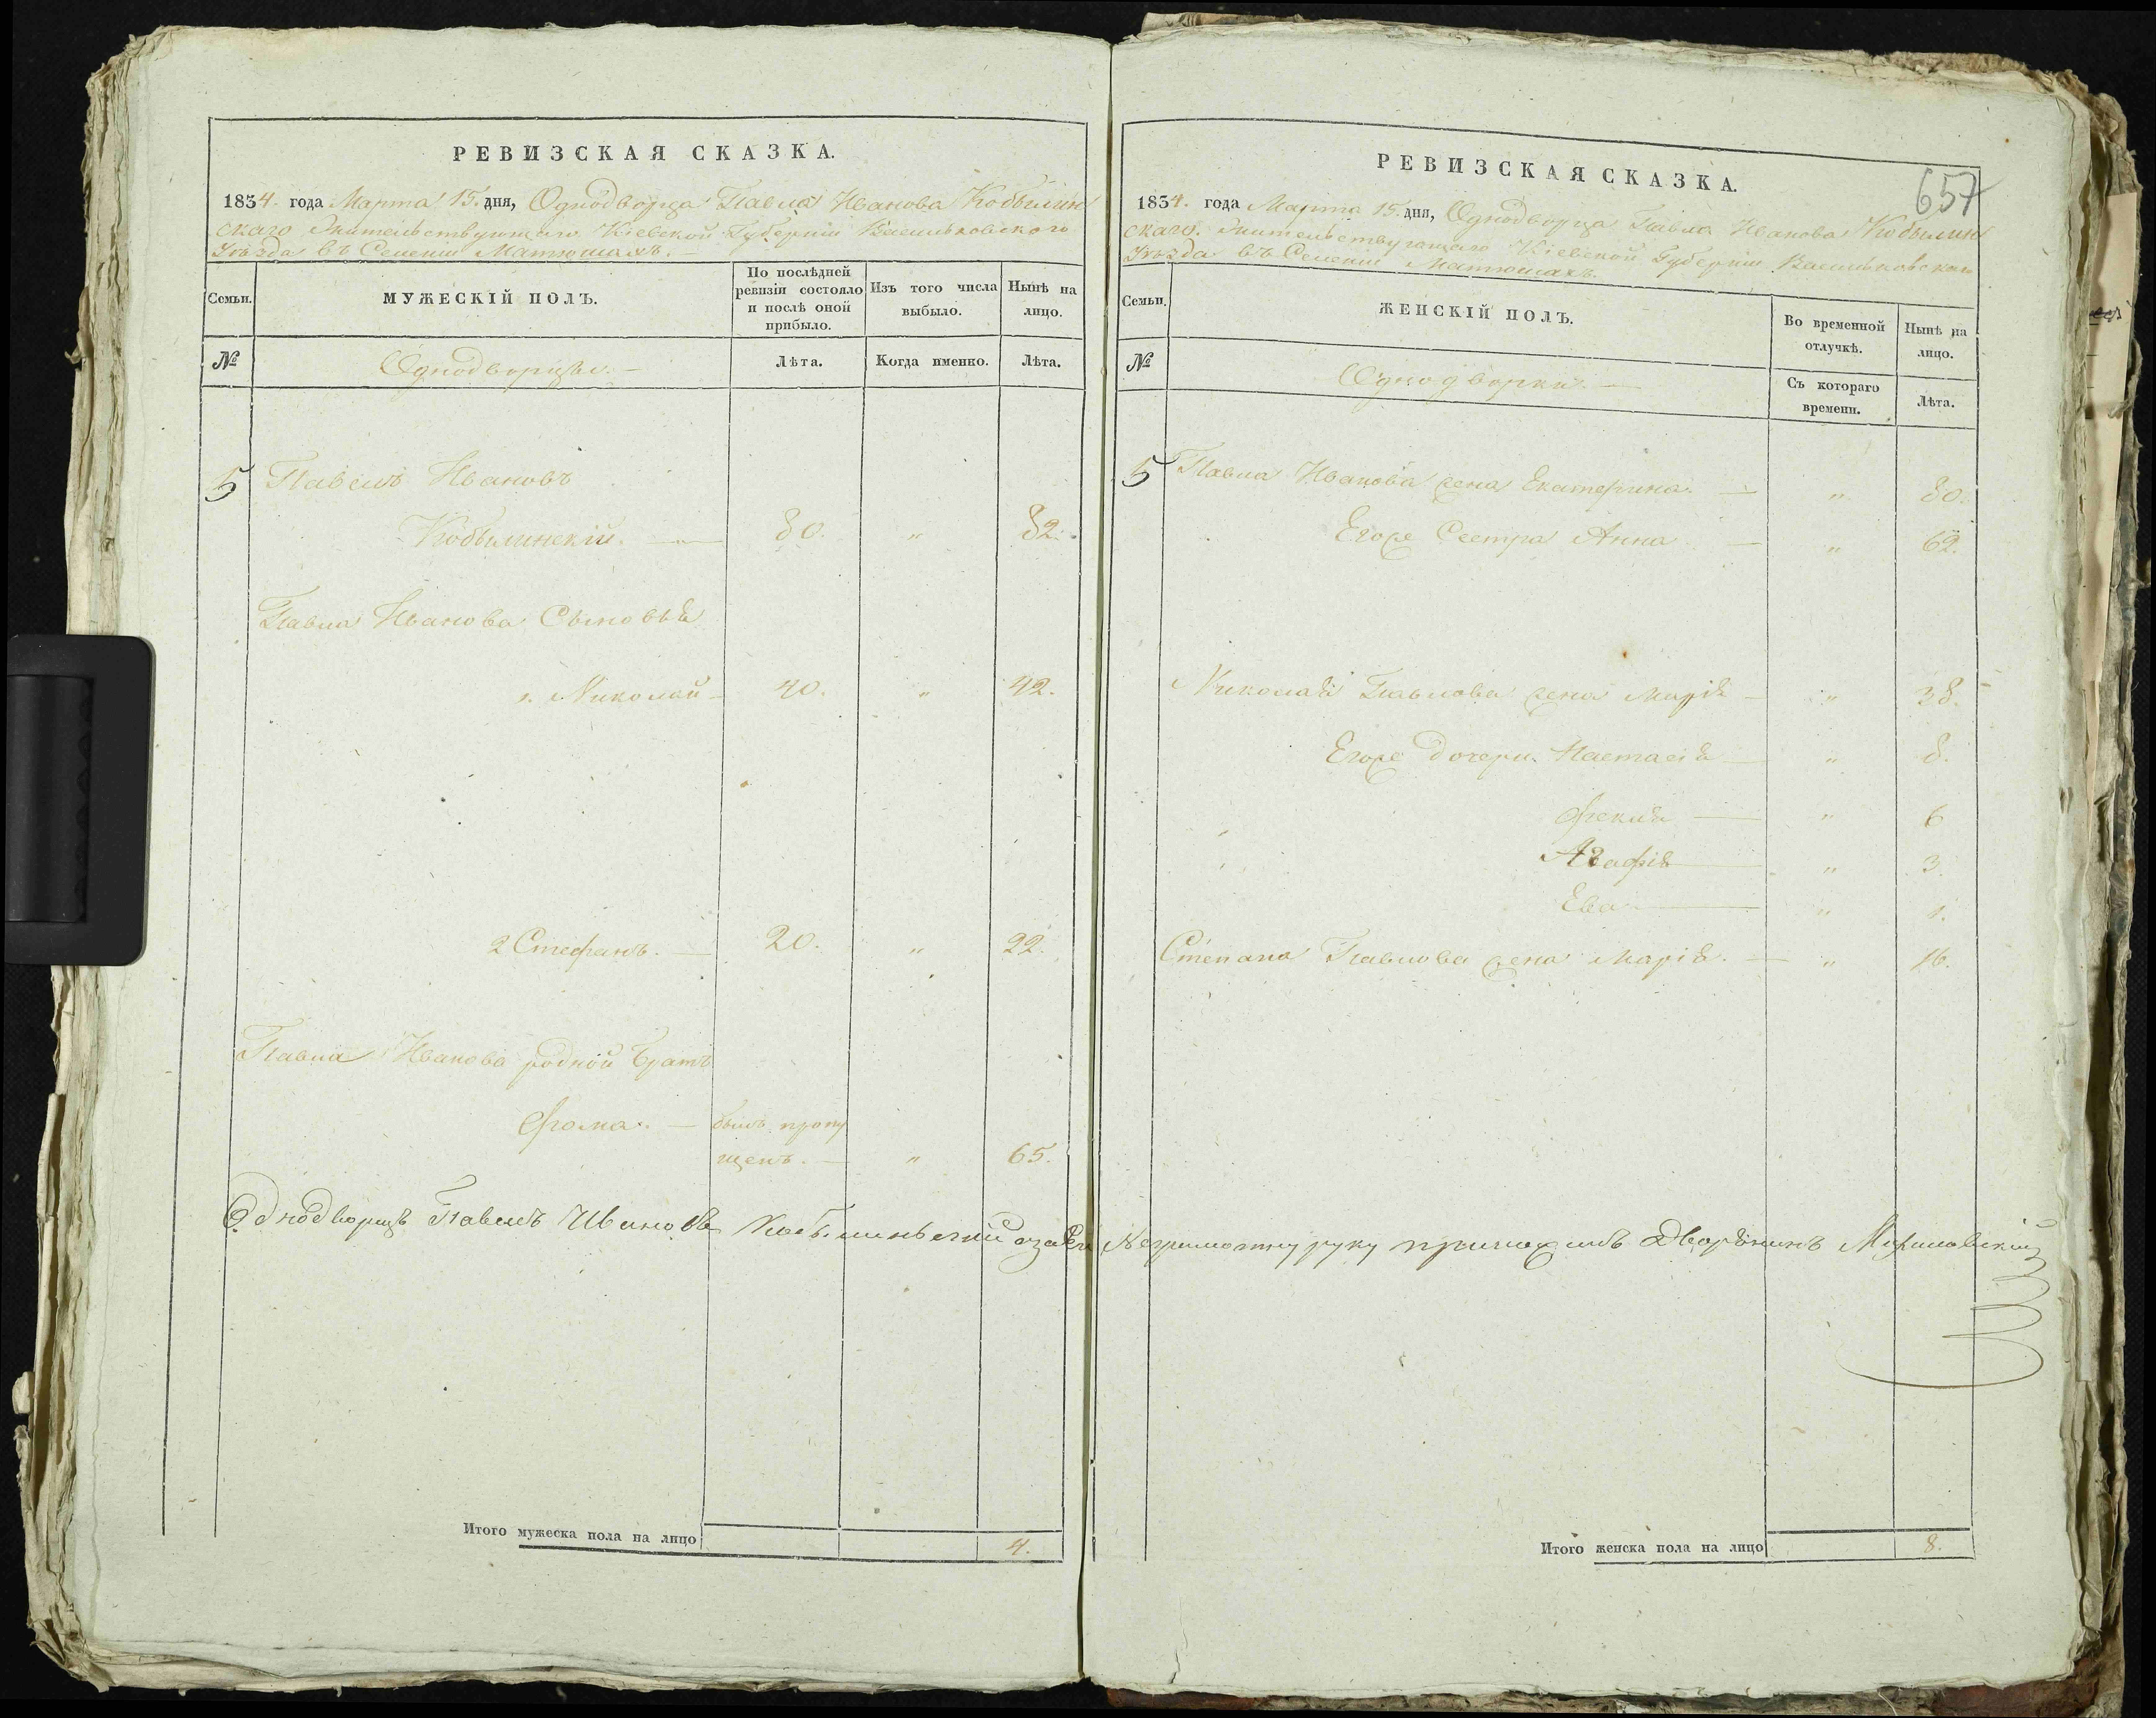 РЕВИЗСКАЯ СКАЗКА.
1834. года Марта 15. дня, Однодворца Павла Иванова Кобылин
скаго Жительствующаго Кіевской Губерніи Васильковского
Уѣзда въ Селеніи Матюшахъ. —
Семьи.
МУЖЕСКІЙ ПОЛЪ.
По послѣдней
ревизіи состояло
и послѣ оной
прибыло.
Изъ того числа
выбыло.
Нынѣ на
лицо.
№
Однодворцы. —
Лѣта.
Когда именно.
Лѣта.
5 Павелъ Ивановъ
Кобылинскій. — 80. " 82.
Павла Иванова Сыновья
1. Николай — 40. " 42.
2 Стефанъ. — 20. " 22.
Павла Иванова родной Братъ
Фома. — былъ пропу
щенъ. — " 65.
Однодворецъ Павелъ Ивановъ Кобылиньский а заего Неграмотну руку приложилъ Дворянинъ
Итого мужеска пола на лицо 4.
657
РЕВИЗСКАЯ СКАЗКА.
1834. года Марта 15. дня, Однодворца Павла Иванова Кобылин
скаго. Жительствующаго Кіевской Губерніи Васильковскаго
Уѣзда въ Селеніи Матюшахъ.
Семьи.
ЖЕНСКІЙ ПОЛЪ.
Во временной
отлучкѣ.
Нынѣ на
лицо.
№
Однодворки. —
Съ котораго
времени.
Лѣта.
5 Павла Иванова жена Екатерина. — " 80.
Егоже Сестра Анна — " 62.
Николая Павлова жена Марія — " 38.
Егоже дочери. Настасія — " 8.
Фекля — " 6
Агафія — " 3.
Ева — " 1.
Степана Павлова жена Марія. — " 16.
Итого женска пола на лицо 8.